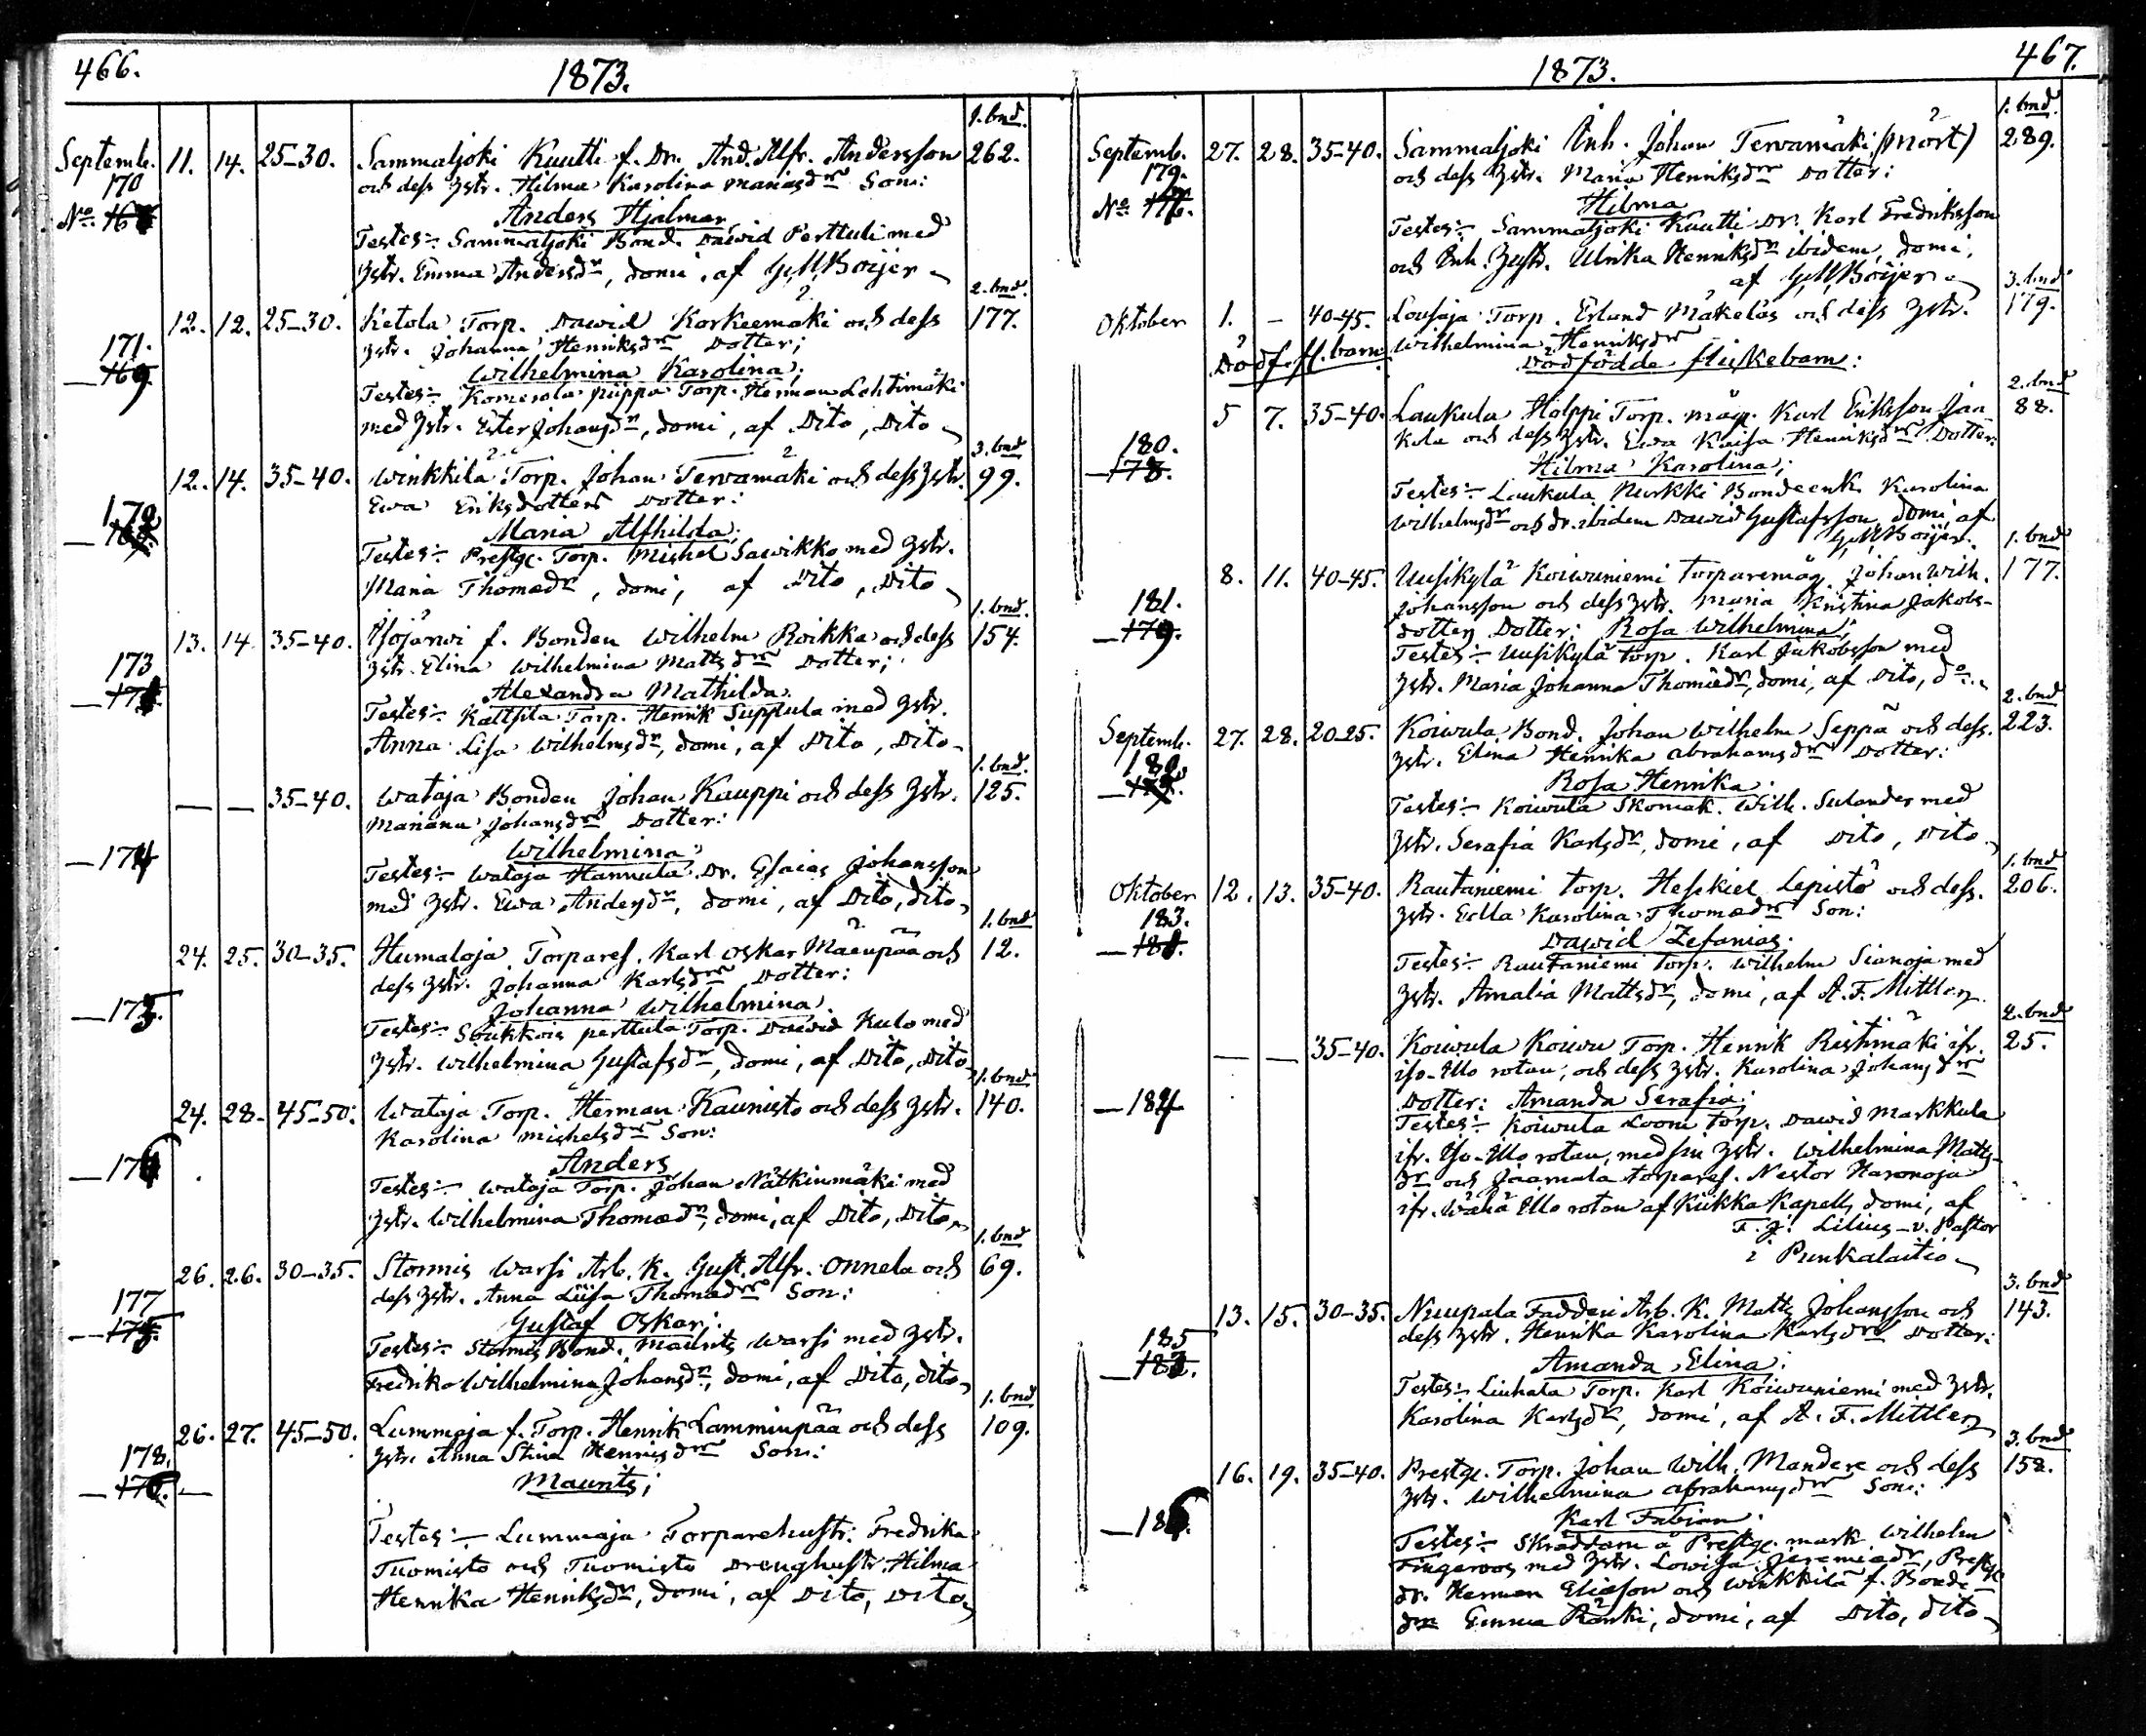 466.
1873.
1. bnd.
Septemb. 11. 14. 25-30. Sammaljoki Kuutti f. Dr. And. Alfr. Andersson 262.
170 och dess hstr. Hilma Karolina Mariasdr Son:
No. 168 Anders Hjalmar
Testes:- Sammaljoki Bond. David Perttuli med
hstr. Emma Andersdr, domi, af G.M. Boijer
2. bnd.
12. 12. 25-30. Ketola Torp. Dawid Korkeemäki och dess 177.
171. hstr. Johanna Henriksdr Dotter;
— 169 Wilhelmina Karolina;
Testes:- Komerola piippo Torp. Herman Lehtimäki
med hstr. Ester Johansdr, domi, af Dito, Dito
3. bnd
12. 14. 35-40. Winkkilä Torp. Johan Terwamäki och dess hstr. 99.
Ewa Eriksdotters Dotter:
172 Maria Alfhilda;
Testes:- Prestge. Torp. Mishel Sawikko med hstr.
Maria Thomædr, domi, af Dito, Dito
1. bnd.
13. 14. 35-40. Isojärwi f. Bonden Wilhelm Roikka och dess 154.
173 hstr. Elina Wilhelmina Mattsdr Dotter;
— 171 Alexandra Mathilda.
Testes:- Kättsilä Torp. Henrik Suppula med hstr.
Anna Lisa Wilhelmsdr, domi, af Dito, Dito
1. bnd.
— — 35-40. Wataja Bonden Johan Kauppi och dess hstr. 125.
Mariana Johansdr Dotter:
— 174 Wilhelmina;
Testes:- Wataja Hannula Dr. Esaias Johansson
med hstr. Ewa Andersdr, domi, af Dito, dito
1. bnd
24. 25. 30-35. Humaloja Torparef. Karl Oskar Mäenpää och 12.
dess hstr. Johanna Karlsdr Dotter:
— 175. Johanna Wilhelmina.
Testes:- Soukkois perttula Torp. Dawid Kulo med
hstr. Wilhelmina Gustafsdr, domi, af Dito, Dito
1. bnd
24. 28. 45-50. Wataja Torp. Herman Kaunisto och dess hstr. 140.
Karolina Mishelsdr Son:
— 176 Anders
Testes:- Wataja Torp. Johan Nätkinmäki med
hstr. Wilhelmina Thomædr, domi, af Dito, Dito
1. bnd
26. 26. 30-35. Stormis Warsi Arb. K. Gust. Alfr. Onnela och 69.
177 dess hstr. Anna Liisa Thomædr Son:
— 175. Gustaf Oskar;
Testes:- Stormis Bond. Maurits Warsi med hstr.
Fredrika Wilhelmina Johansdr, domi, af Dito, dito
1. bnd
26. 27. 45-50. Lummaja f. Torp. Henrik Lamminpää och dess 109.
178. hstr. Anna Stina Henrisdr Son:
— 176. — Maurits;
Testes:- Lummaja Torparehustr. Fredrika
Tuomisto och Tuomisto Drenghustr. Hilma
Henrika Henriksdr, domi, af Dito, Dito
467.
1873.
1. bnd.
Septemb. 27. 28. 35-40. Sammaljoki Inh. Johan Terwamäki (Mört) 289.
179. och dess hstr. Maria Henriksdr Dotter:
No. Hilma
Testes:- Sammaljoki Kuutti Dr. Karl Fredriksson
och Inh. hustr. Ulrika Henriksdr ibidem, domi,
af G.M. Boijer
3. bnd
Oktober 1. — 40-45. Lousaja Torp. Erland Mäkeläs och dess hstr. 179.
Dödf. fl. barn Wilhelmina Henriksdr
Dödfödde flickebarn:
2. bnd
5 7. 35-40. Laukula Holppi Torp. måg. Karl Eriksson Jaa- 88.
180. kola och dess hstr. Ewa Kaisa Henriksdr Dotter:
— 178. Hilma Karolina;
Testes:- Laukula Nurkki Bondeenk. Karolina
Wilhelmsdr och dr. ibidem Dawid Gustafsson, domi, af
G.M. Boijer.
1. bnd
8. 11. 40-45. Uusikylä Koiwuniemi torparemåg Johan Wilh. 177.
181. Johansson och dess hstr. Maria Kristina Jakobs-
— 179. dotters Dotter: Rosa Wilhelmina;
Testes:- Uusikylä torp. Karl Jakobsson med
hstr. Maria Johanna Thomædr, domi, af Dito, do.
2. bnd
Septemb. 27. 28. 20-25. Koiwula Bond. Johan Wilhelm Seppä och dess 223.
182. hstr. Elina Henrika Abrahamsdr Dotter:
Rosa Henrika.
Testes:- Koiwula Skomak. Wilh. Sulander med
hstr. Serafia Karlsdr, domi, af Dito, Dito
1. bnd
Oktober 12. 13. 35-40. Rautaniemi Torp. Heskiel Lepistö och dess 206.
183. hstr. Edla Karolina Thomædr Son:
— 181. Dawid Zefanias.
Testes:- Rautaniemi Torp. Wilhelm Sianoja med
hstr. Amalia Mattsdr, domi, af A. F. Mittler
2. bnd
— — 35-40. Koiwula Koiwu Torp. Henrik Ristimäki ifr. 25.
iso-Illo rotan, och dess hstr. Karolina Johansdr
— 184 Dotter: Amanda Serafia;
Testes:- Koiwula Looni torp. Dawid Markkula
ifr. Iso-Illo rotan, med sin hstr. Wilhelmina Matts-
dr och Jaamala torparef. Nestor Haronoja
ifr. Wähä Illo rotan af Kiikka Kapell, domi, af
F. J. Lilius - v. Pastor
i Punkalaitio
3. bnd
13. 15. 30-35. Nuupala Fadderi Arb. K. Matts Johansson och 143.
185 dess hstr. Henrika Karolina Karlsdr Dotter:
— 183. Amanda Elina;
Testes:- Liuhala Torp. Karl Koiwuniemi med hstr.
Karolina Karlsdr, domi, af A. F. Mittler
3. bnd
16. 19. 35-40. Prestge. Torp. Johan Wilh. Mandere och dess 158.
hstr. Wilhelmina Abrahamsdr Son:
— 186. Karl Fabian.
Testes:- Skräddarn å Prestge. mark Wilhelm
Fingerroos med hstr. Lowisa Jeremiædr, Prestge
dr. Herman Eliasson och Winkkilä f. Bonde-
dr Emma Ranki, domi, af Dito, dito